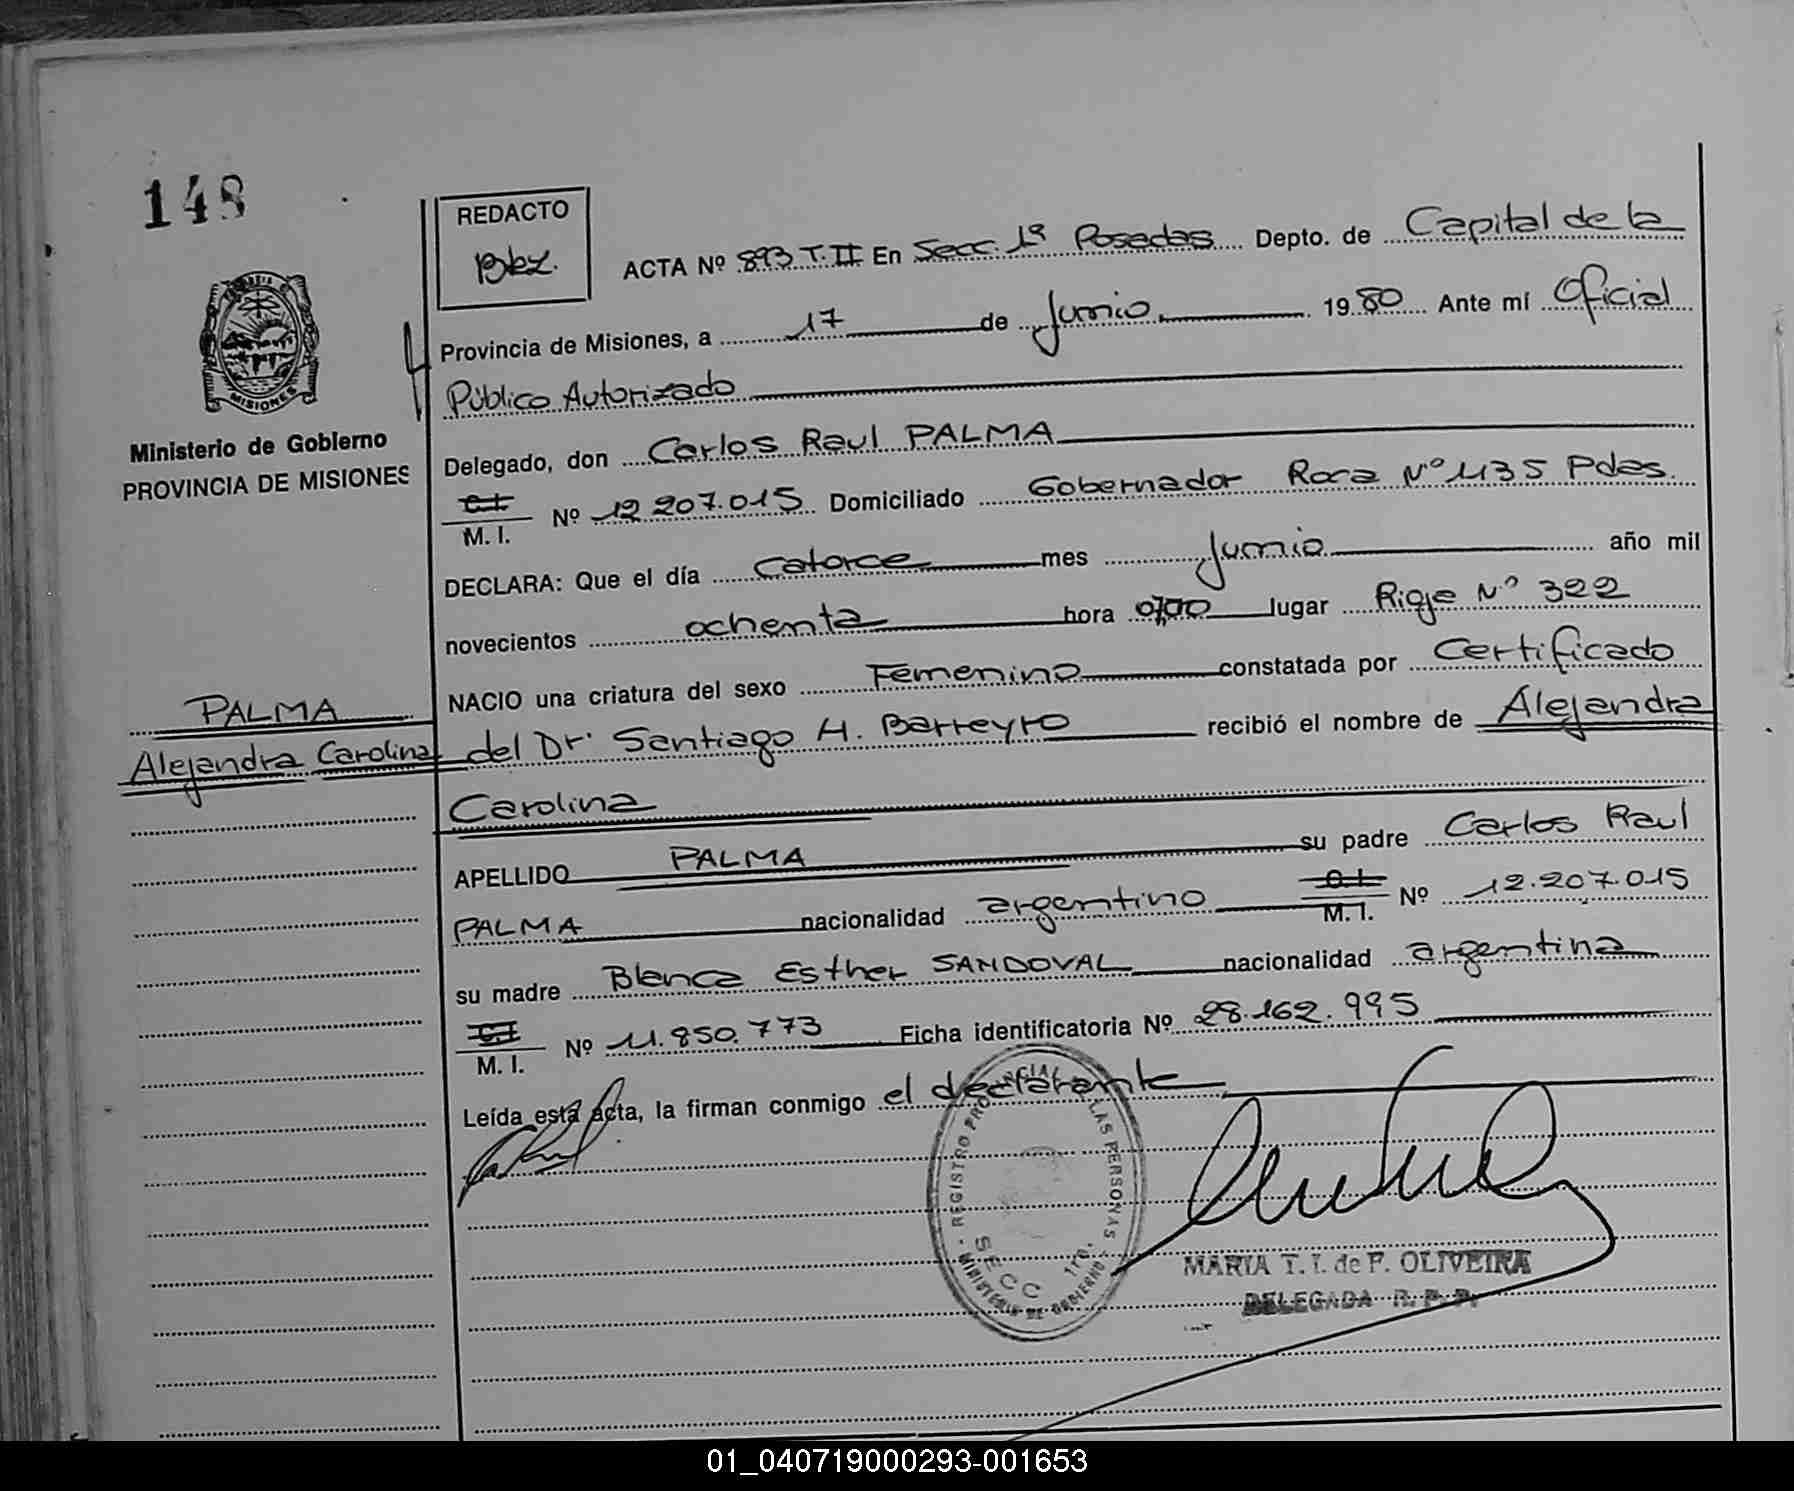 148
REDACTO
ACTA Nº 893 T. II En Secc. 1ª Posadas Depto. de Capital de la
Provincia de Misiones, a 17 de Junio 1980 Ante mí Oficial
Público Autorizado
MISIONES
Ministerio de Gobierno
PROVINCIA DE MISIONES
Delegado, don Carlos Raul PALMA
C.I.
M. I. Nº 12.207.015 Domiciliado Gobernador Roca Nº 1135 Pdas.
DECLARA: Que el día catorce mes Junio año mil
novecientos ochenta hora lugar Nº 322
NACIO una criatura del sexo Femenino constatada por Certificado
PALMA
Alejandra Carolina
del Dr. Santiago H. Barreyro recibió el nombre de Alejandra
Carolina
APELLIDO PALMA su padre Carlos Raul
PALMA nacionalidad argentino C.I. M. I. Nº 12.207.015
su madre Blanca Esther SANDOVAL nacionalidad argentina
C.I.
M. I. Nº 11.850.773 Ficha identificatoria Nº 28.162.995
Leída esta acta, la firman conmigo el declarante
REGISTRO PROVINCIAL DE LAS PERSONAS
SECC 1ra.
MINISTERIO DE GOBIERNO
MARIA T. I. de F. OLIVEIRA
DELEGADA R. P. P.
01_040719000293-001653